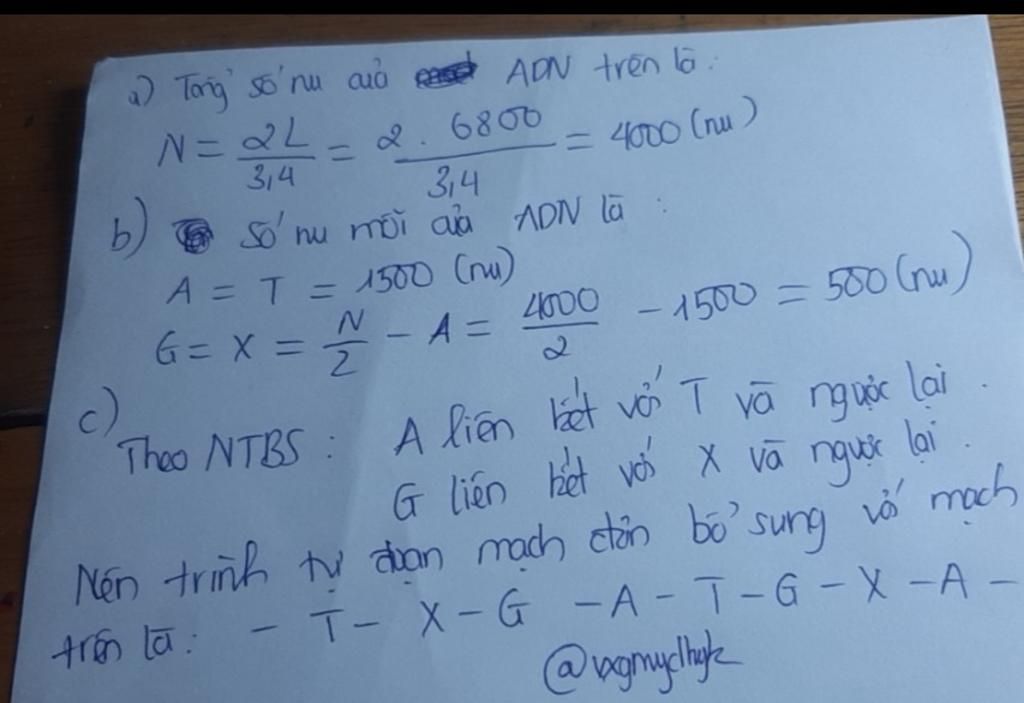 a) Tổng số nu của ADN trên là:
N = 2L/3,4 = 2.6800/3,4 = 4000 (nu)
b) số nu mỗi của ADN là :
A = T = 1500 (nu)
G = X = N/2 - A = 4000/2 - 1500 = 500 (nu)
c)
Theo NTBS : A liên kết với T và ngược lại.
G liên kết với X và ngược lại.
Nên trình tự đoạn mạch đơn bổ sung với mạch
trên là: - T - X - G - A - T - G - X - A -